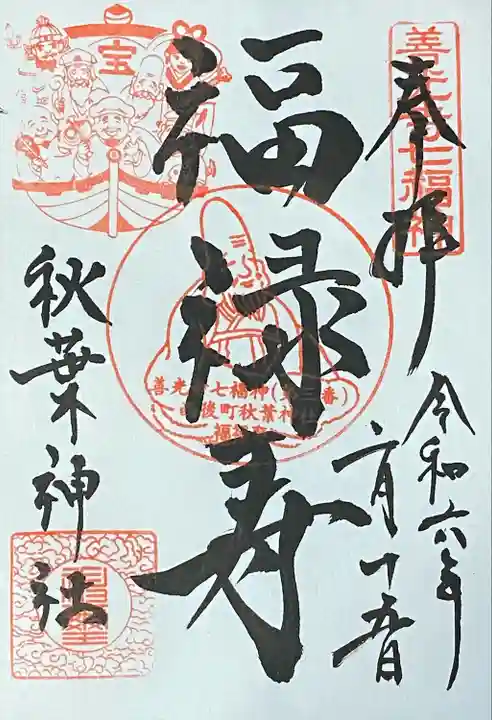 善光寺七福神
奉拝
令和六年
二月十五日
福禄寿
宝
善光寺七福神(第三番)
後町秋葉神社
秋葉神社